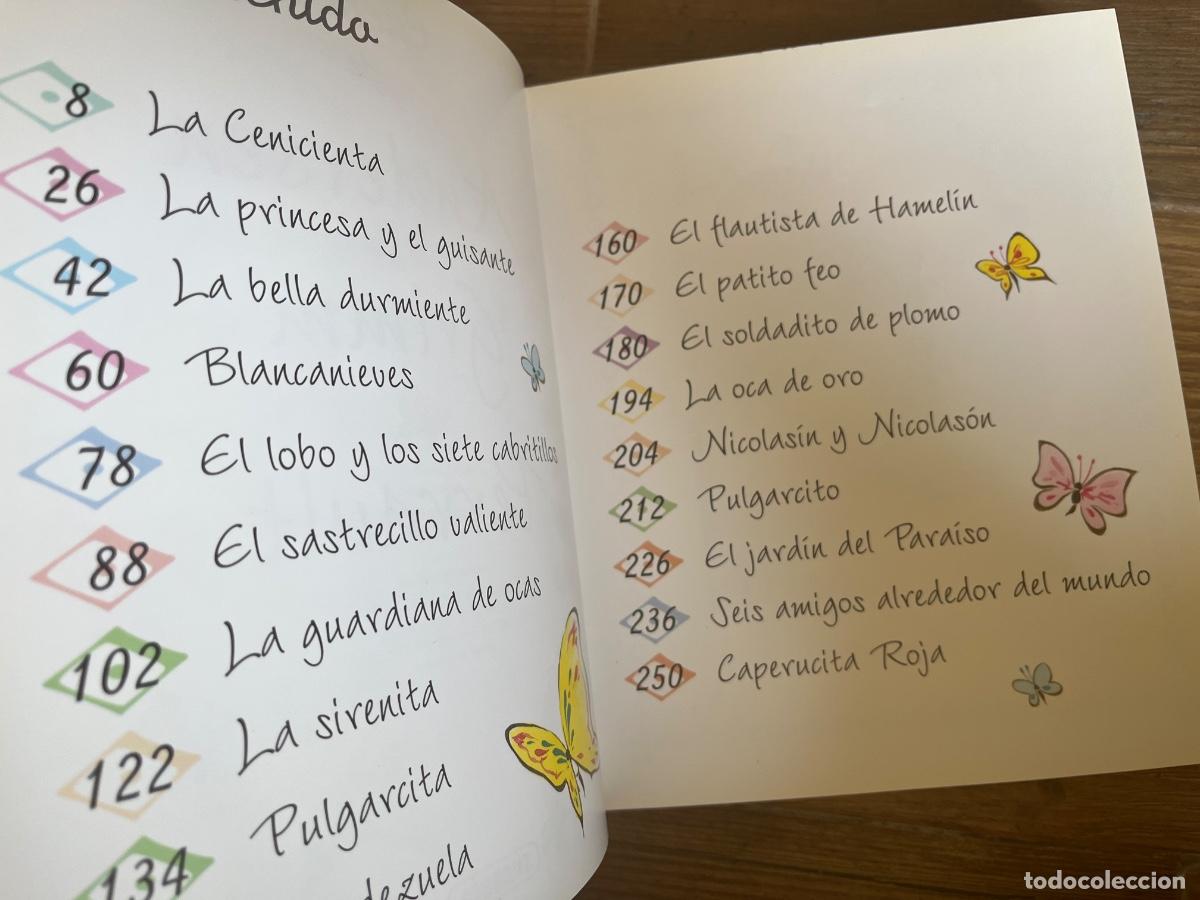 8 La Cenicienta
26 La princesa y el guisante
42 La bella durmiente
60 Blancanieves
78 El lobo y los siete cabritillos
88 El sastrecillo valiente
102 La guardiana de ocas
122 La sirenita
134 Pulgarcita
160 El flautista de Hamelín
170 El patito feo
180 El soldadito de plomo
194 La oca de oro
204 Nicolasín y Nicolasón
212 Pulgarcito
226 El jardín del Paraíso
236 Seis amigos alrededor del mundo
250 Caperucita Roja
todocoleccion